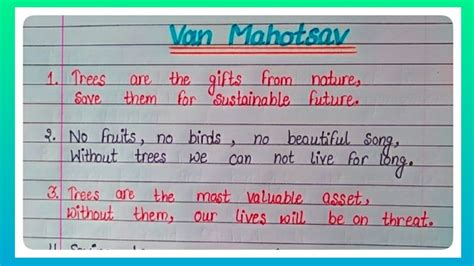 Van Mahotsav
1. Trees are the gifts from nature,
Save them for sustainable future.
2. No fruits, no birds, no beautiful song,
Without trees we can not live for long.
3. Trees are the most valuable asset,
without them, our lives will be on threat.